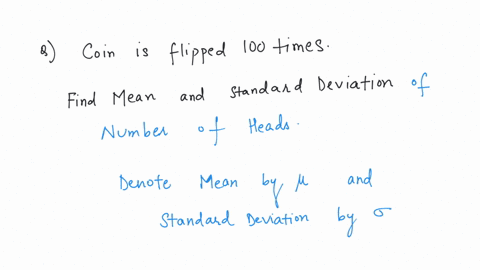 Q) Coin is flipped 100 times.
Find Mean and Standard Deviation of
Number of Heads.
Denote Mean by μ and
Standard Deviation by σ